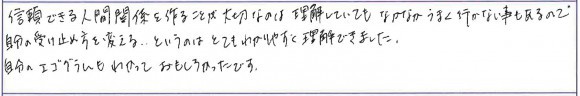 信頼できる人間関係を作ることが大切なのは理解していてもなかなかうまく行かない事もあるので
自分の受け止め方を変える‥というのはとてもわかりやすく理解できました。
自分のエゴグラムもわかっておもしろかったです。